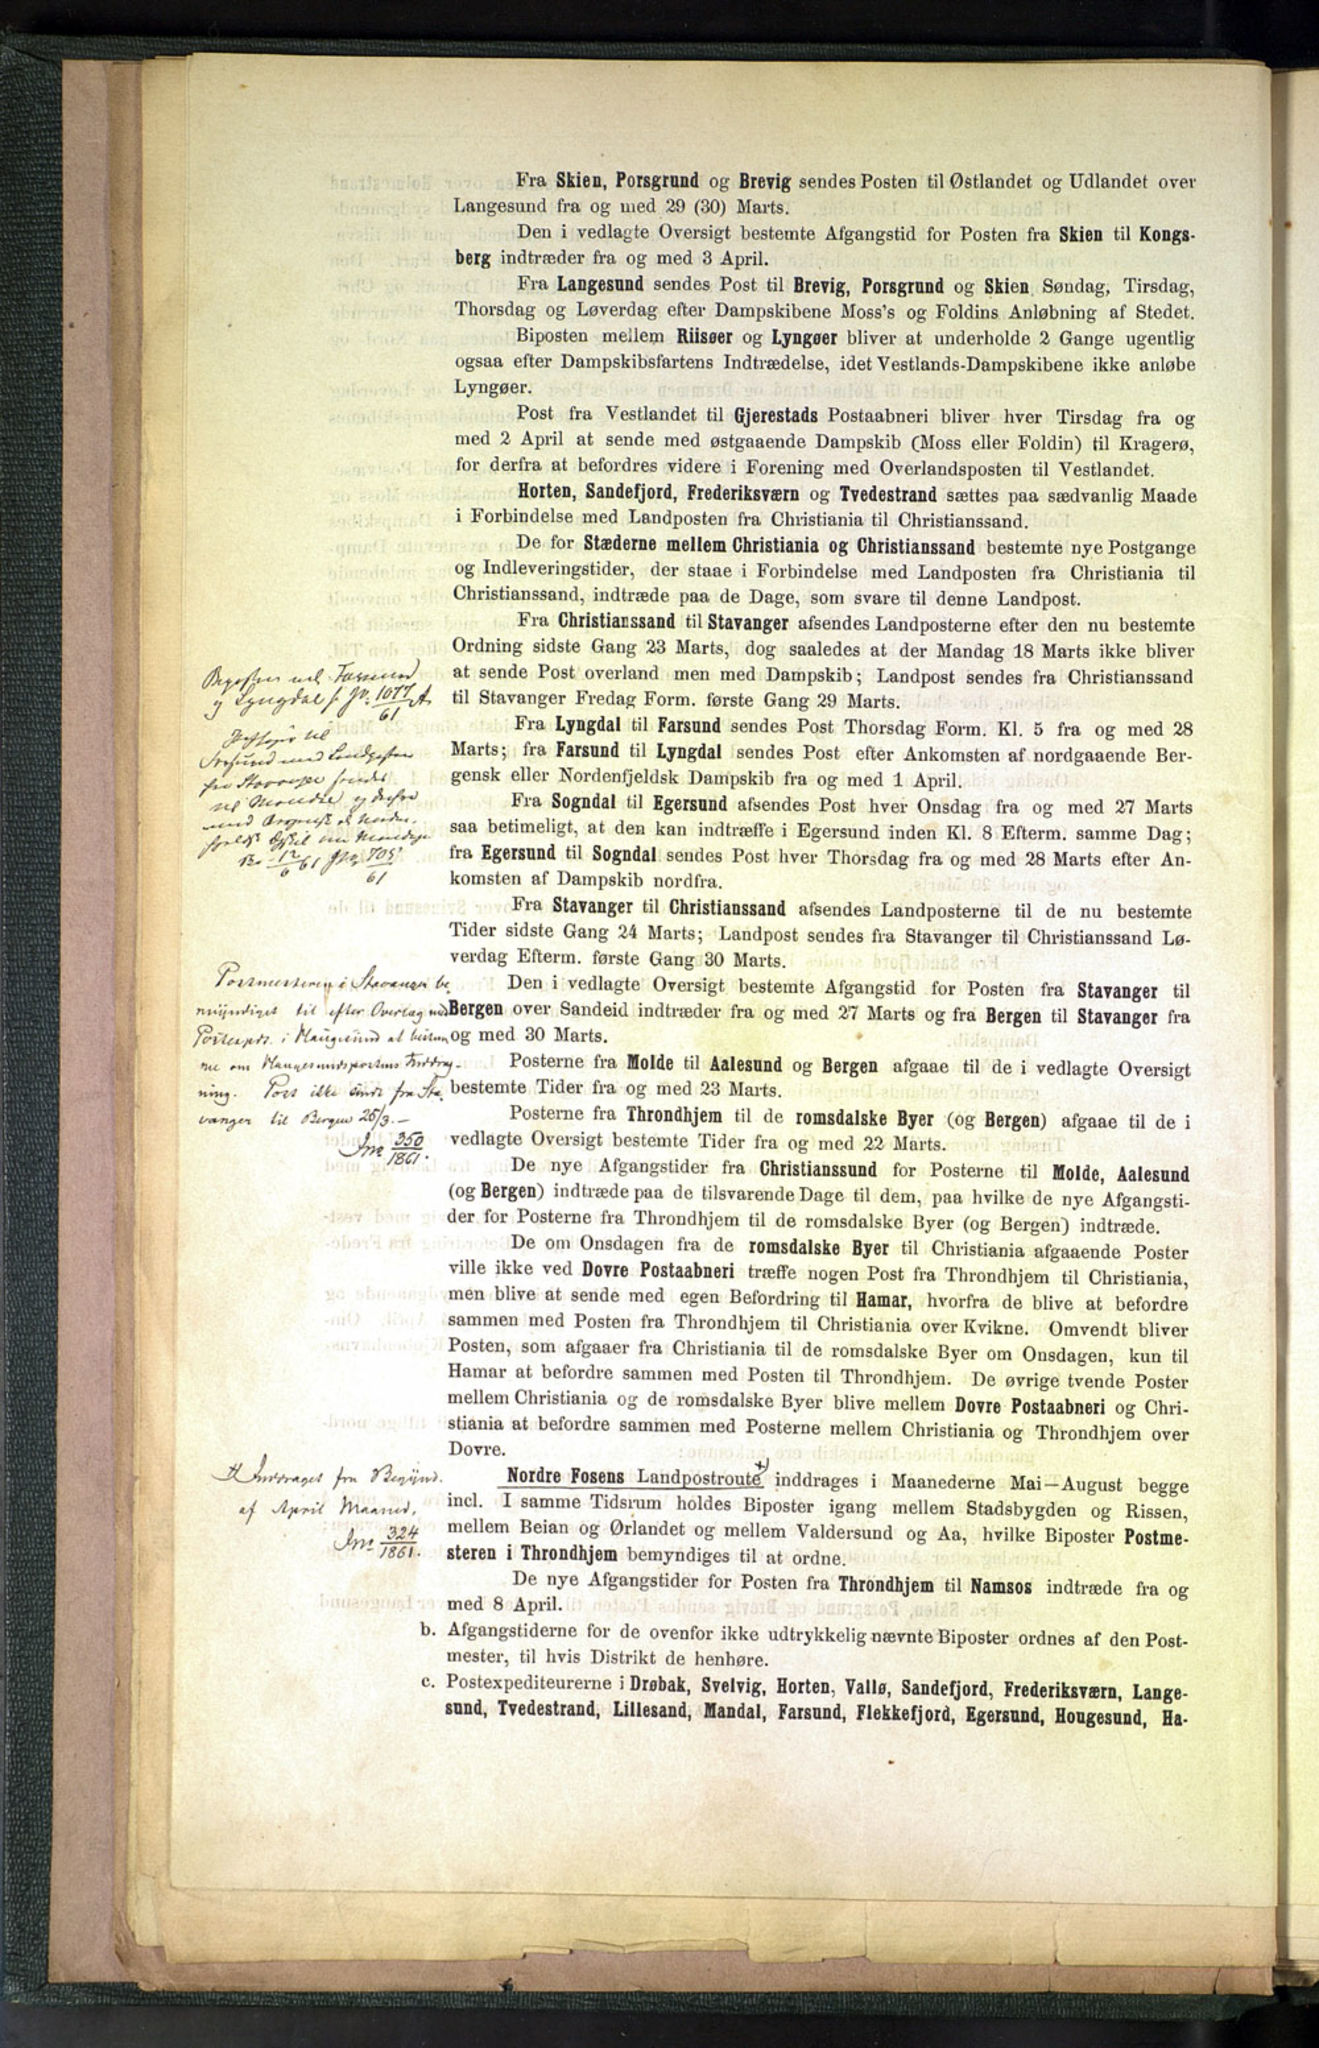 Fra Skien, Porsgrund og Brevig sendes Posten til Østlandet og Udlandet over
Langesund fra og med 29 (30) Marts.
Den i vedlagte Oversigt bestemte Afgangstid for Posten fra Skien til Kongs-
berg indtræder fra og med 3 April.
Fra Langesund sendes Post til Brevig, Porsgrund og Skien Søndag, Tirsdag,
Thorsdag og Løverdag efter Dampskibene Moss's og Foldins Anløbning af Stedet.
Biposten mellem Riisøer og Lyngøer bliver at underholde 2 Gange ugentlig
ogsaa efter Dampskibsfartens Indtrædelse, idet Vestlands-Dampskibene ikke anløbe
Lyngøer.
Post fra Vestlandet til Gjerestads Postaabneri bliver hver Tirsdag fra og
med 2 April at sende med østgaaende Dampskib (Moss eller Foldin) til Kragerø,
for derfra at befordres videre i Forening med Overlandsposten til Vestlandet.
Horten, Sandefjord, Frederiksværn og Tvedestrand sættes paa sædvanlig Maade
i Forbindelse med Landposten fra Christiania til Christianssand.
De for Stæderne mellem Christiania og Christianssand bestemte nye Postgange
og Indleveringstider, der staae i Forbindelse med Landposten fra Christiania til
Christianssand, indtræde paa de Dage, som svare til denne Landpost.
Fra Christianssand til Stavanger afsendes Landposterne efter den nu bestemte
Ordning sidste Gang 23 Marts, dog saaledes at der Mandag 18 Marts ikke bliver
at sende Post overland men med Dampskib; Landpost sendes fra Christianssand
til Stavanger Fredag Form. første Gang 29 Marts.
og Lyngdal 1077
61
Fra Lyngdal til Farsund sendes Post Thorsdag Form. Kl. 5 fra og med 28
Marts; fra Farsund til Lyngdal sendes Post efter Ankomsten af nordgaaende Ber-
gensk eller Nordenfjeldsk Dampskib fra og med 1 April.
til
med Landposten
fra Stavanger sendes
til og derfra
med
12/6 61 705
61
Fra Sogndal til Egersund afsendes Post hver Onsdag fra og med 27 Marts
saa betimeligt, at den kan indtræffe i Egersund inden Kl. 8 Efterm. samme Dag;
fra Egersund til Sogndal sendes Post hver Thorsdag fra og med 28 Marts efter An-
komsten af Dampskib nordfra.
Fra Stavanger til Christianssand afsendes Landposterne til de nu bestemte
Tider sidste Gang 24 Marts; Landpost sendes fra Stavanger til Christianssand Lø-
verdag Efterm. første Gang 30 Marts.
Den i vedlagte Oversigt bestemte Afgangstid for Posten fra Stavanger til
Bergen over Sandeid indtræder fra og med 27 Marts og fra Bergen til Stavanger fra
og med 30 Marts.
Postmesteren i Stavanger be
myndiget til efter Overlæg med
Postexpd. i Haugesund at bestem
me om Haugesundspostens Inddrag-
ning. Post ikke sendt fra Sta
vanger til Bergen 25/3.—
Jno 350
1861.
Posterne fra Molde til Aalesund og Bergen afgaae til de i vedlagte Oversigt
bestemte Tider fra og med 23 Marts.
Posterne fra Throndhjem til de romsdalske Byer (og Bergen) afgaae til de i
vedlagte Oversigt bestemte Tider fra og med 22 Marts.
De nye Afgangstider fra Christianssund for Posterne til Molde, Aalesund
(og Bergen) indtræde paa de tilsvarende Dage til dem, paa hvilke de nye Afgangsti-
der for Posterne fra Throndhjem til de romsdalske Byer (og Bergen) indtræde.
De om Onsdagen fra de romsdalske Byer til Christiania afgaaende Poster
ville ikke ved Dovre Postaabneri træffe nogen Post fra Throndhjem til Christiania,
men blive at sende med egen Befordring til Hamar, hvorfra de blive at befordre
sammen med Posten fra Throndhjem til Christiania over Kvikne. Omvendt bliver
Posten, som afgaaer fra Christiania til de romsdalske Byer om Onsdagen, kun til
Hamar at befordre sammen med Posten til Throndhjem. De øvrige tvende Poster
mellem Christiania og de romsdalske Byer blive mellem Dovre Postaabneri og Chri-
stiania at befordre sammen med Posterne mellem Christiania og Throndhjem over
Dovre.
Nordre Fosens Landpostroute +) inddrages i Maanederne Mai—August begge
incl. I samme Tidsrum holdes Biposter igang mellem Stadsbygden og Rissen,
mellem Beian og Ørlandet og mellem Valdersund og Aa, hvilke Biposter Postme-
steren i Throndhjem bemyndiges til at ordne.
+) Inddraget fra Begynd.
af April Maaned.
Jno 324
1861.
De nye Afgangstider for Posten fra Throndhjem til Namsos indtræde fra og
med 8 April.
b. Afgangstiderne for de ovenfor ikke udtrykkelig nævnte Biposter ordnes af den Post-
mester, til hvis Distrikt de henhøre.
c. Postexpediteurerne i Drøbak, Svelvig, Horten, Vallø, Sandefjord, Frederiksværn, Lange-
sund, Tvedestrand, Lillesand, Mandal, Farsund, Flekkefjord, Egersund, Hougesund, Ha-